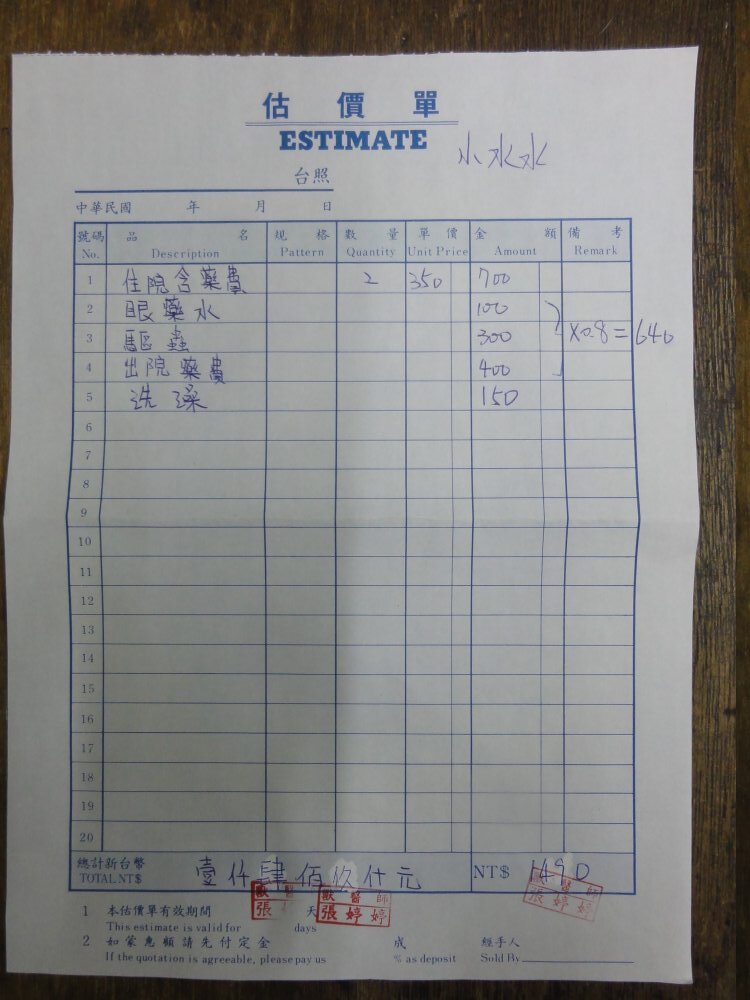 估價單
ESTIMATE
小水水
台照
中華民國 年 月 日
號碼 品名 規格 數量 單價 金額 備考
No. Description Pattern Quantity Unit Price Amount Remark
1 住院含藥費 2 350 700
2 眼藥水 100
3 驅蟲 300 X0.8=640
4 出院藥費 400
5 洗澡 150
6
7
8
9
10
11
12
13
14
15
16
17
18
19
20
總計新台幣 壹仟肆佰玖什元 NT$ 1490
TOTAL NT$
獸醫師 張婷婷
獸醫師 張婷婷
1 本估價單有效期間 天
This estimate is valid for days
2 如蒙惠顧請先付定金 成 經手人
If the quotation is agreeable, please pay us % as deposit Sold By